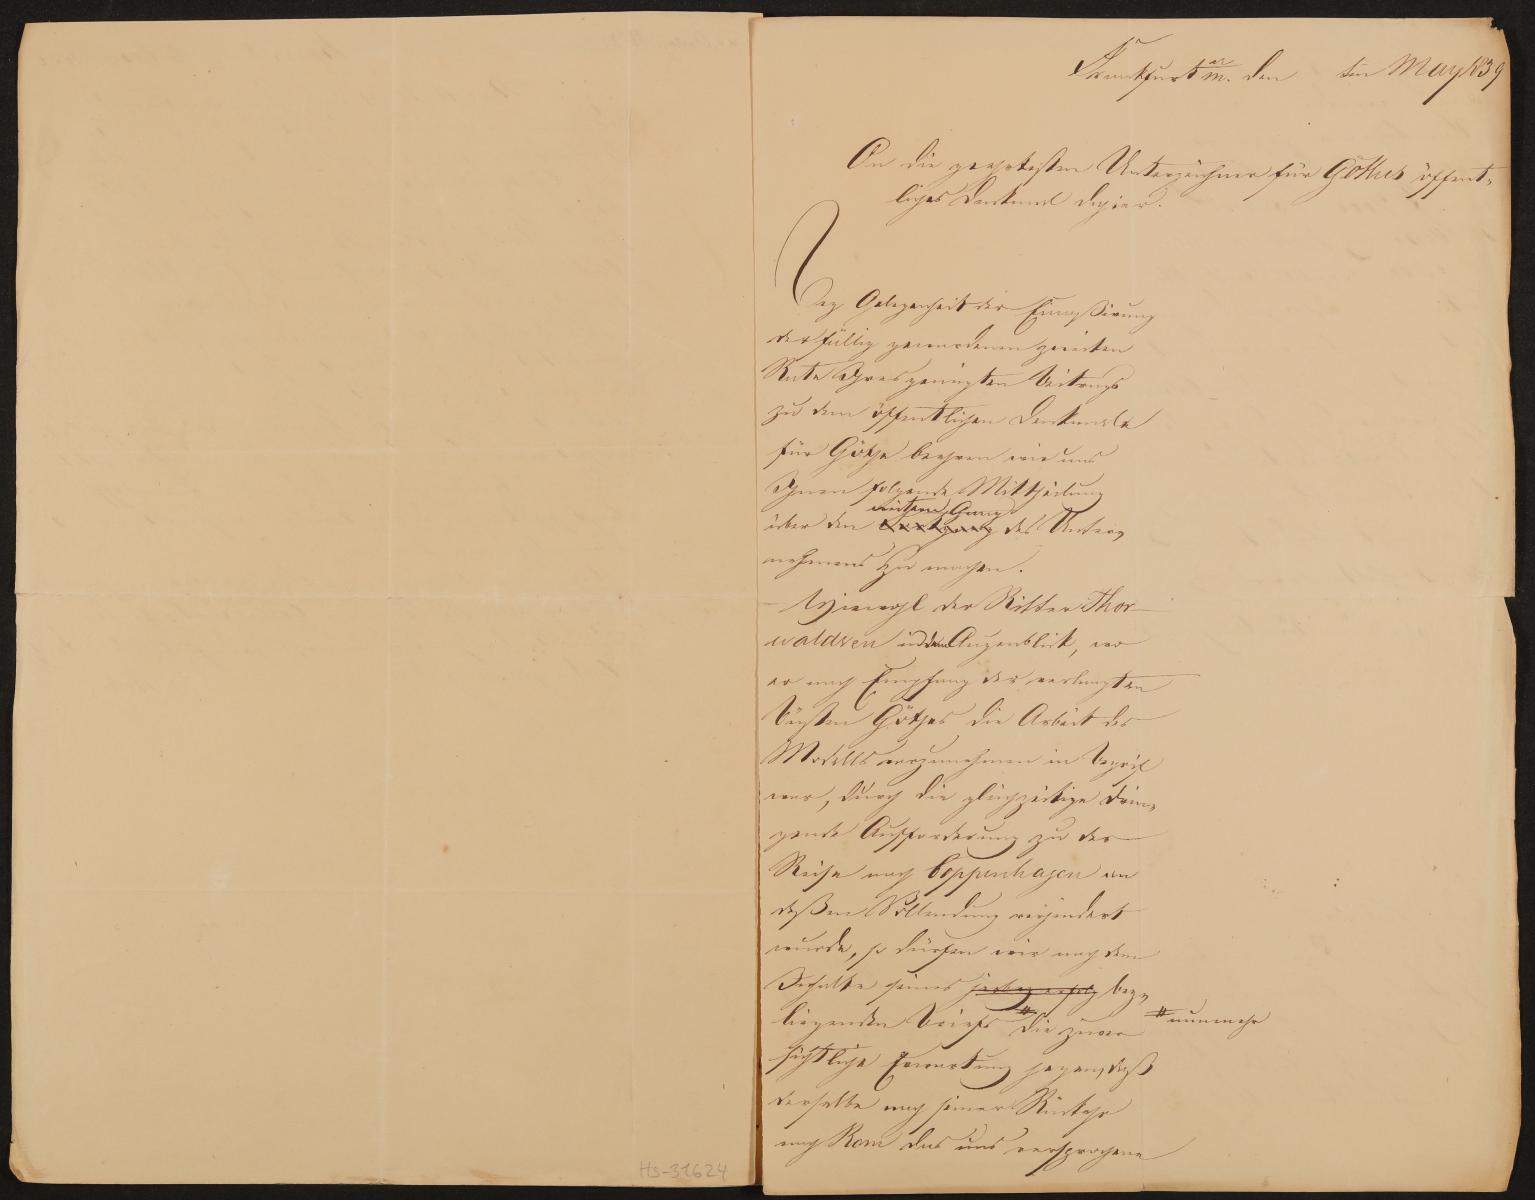 Frankfurt a/m. den        ten May 1839
An die geehrtesten Unterzeichner für Göthes öffent-
liches Denkmal dahier.
Bey Gelegenheit der Einkassirung
der fällig gewordenen zweiten
Rate Ihres geneigten Beitrags
zu dem öffentlichen Denkmale
für Göthe beehren wir uns
Ihnen folgende Mittheilung
weitern Gang
über den des Unter-
nehmens zu machen.
Wiewohl der Ritter Thor-
waldsen in dem Augenblick, wo
er nach Empfang der verlangten
Büsten Göthes die Arbeit des
Modells vorzunehmen im Begriff
war, durch die gleichzeitige drin-
gende Aufforderung zu der
Reise nach Coppenhagen an
deßen Vollendung verhindert
wurde, so dürfen wir nach dem
Inhalte seines bey-
liegenden Briefs # die zuver # nunmehr
sichtliche Erwartung hegen, daß
derselbe nach seiner Rückkehr
nach Rom das uns versprochene
Hs-31624